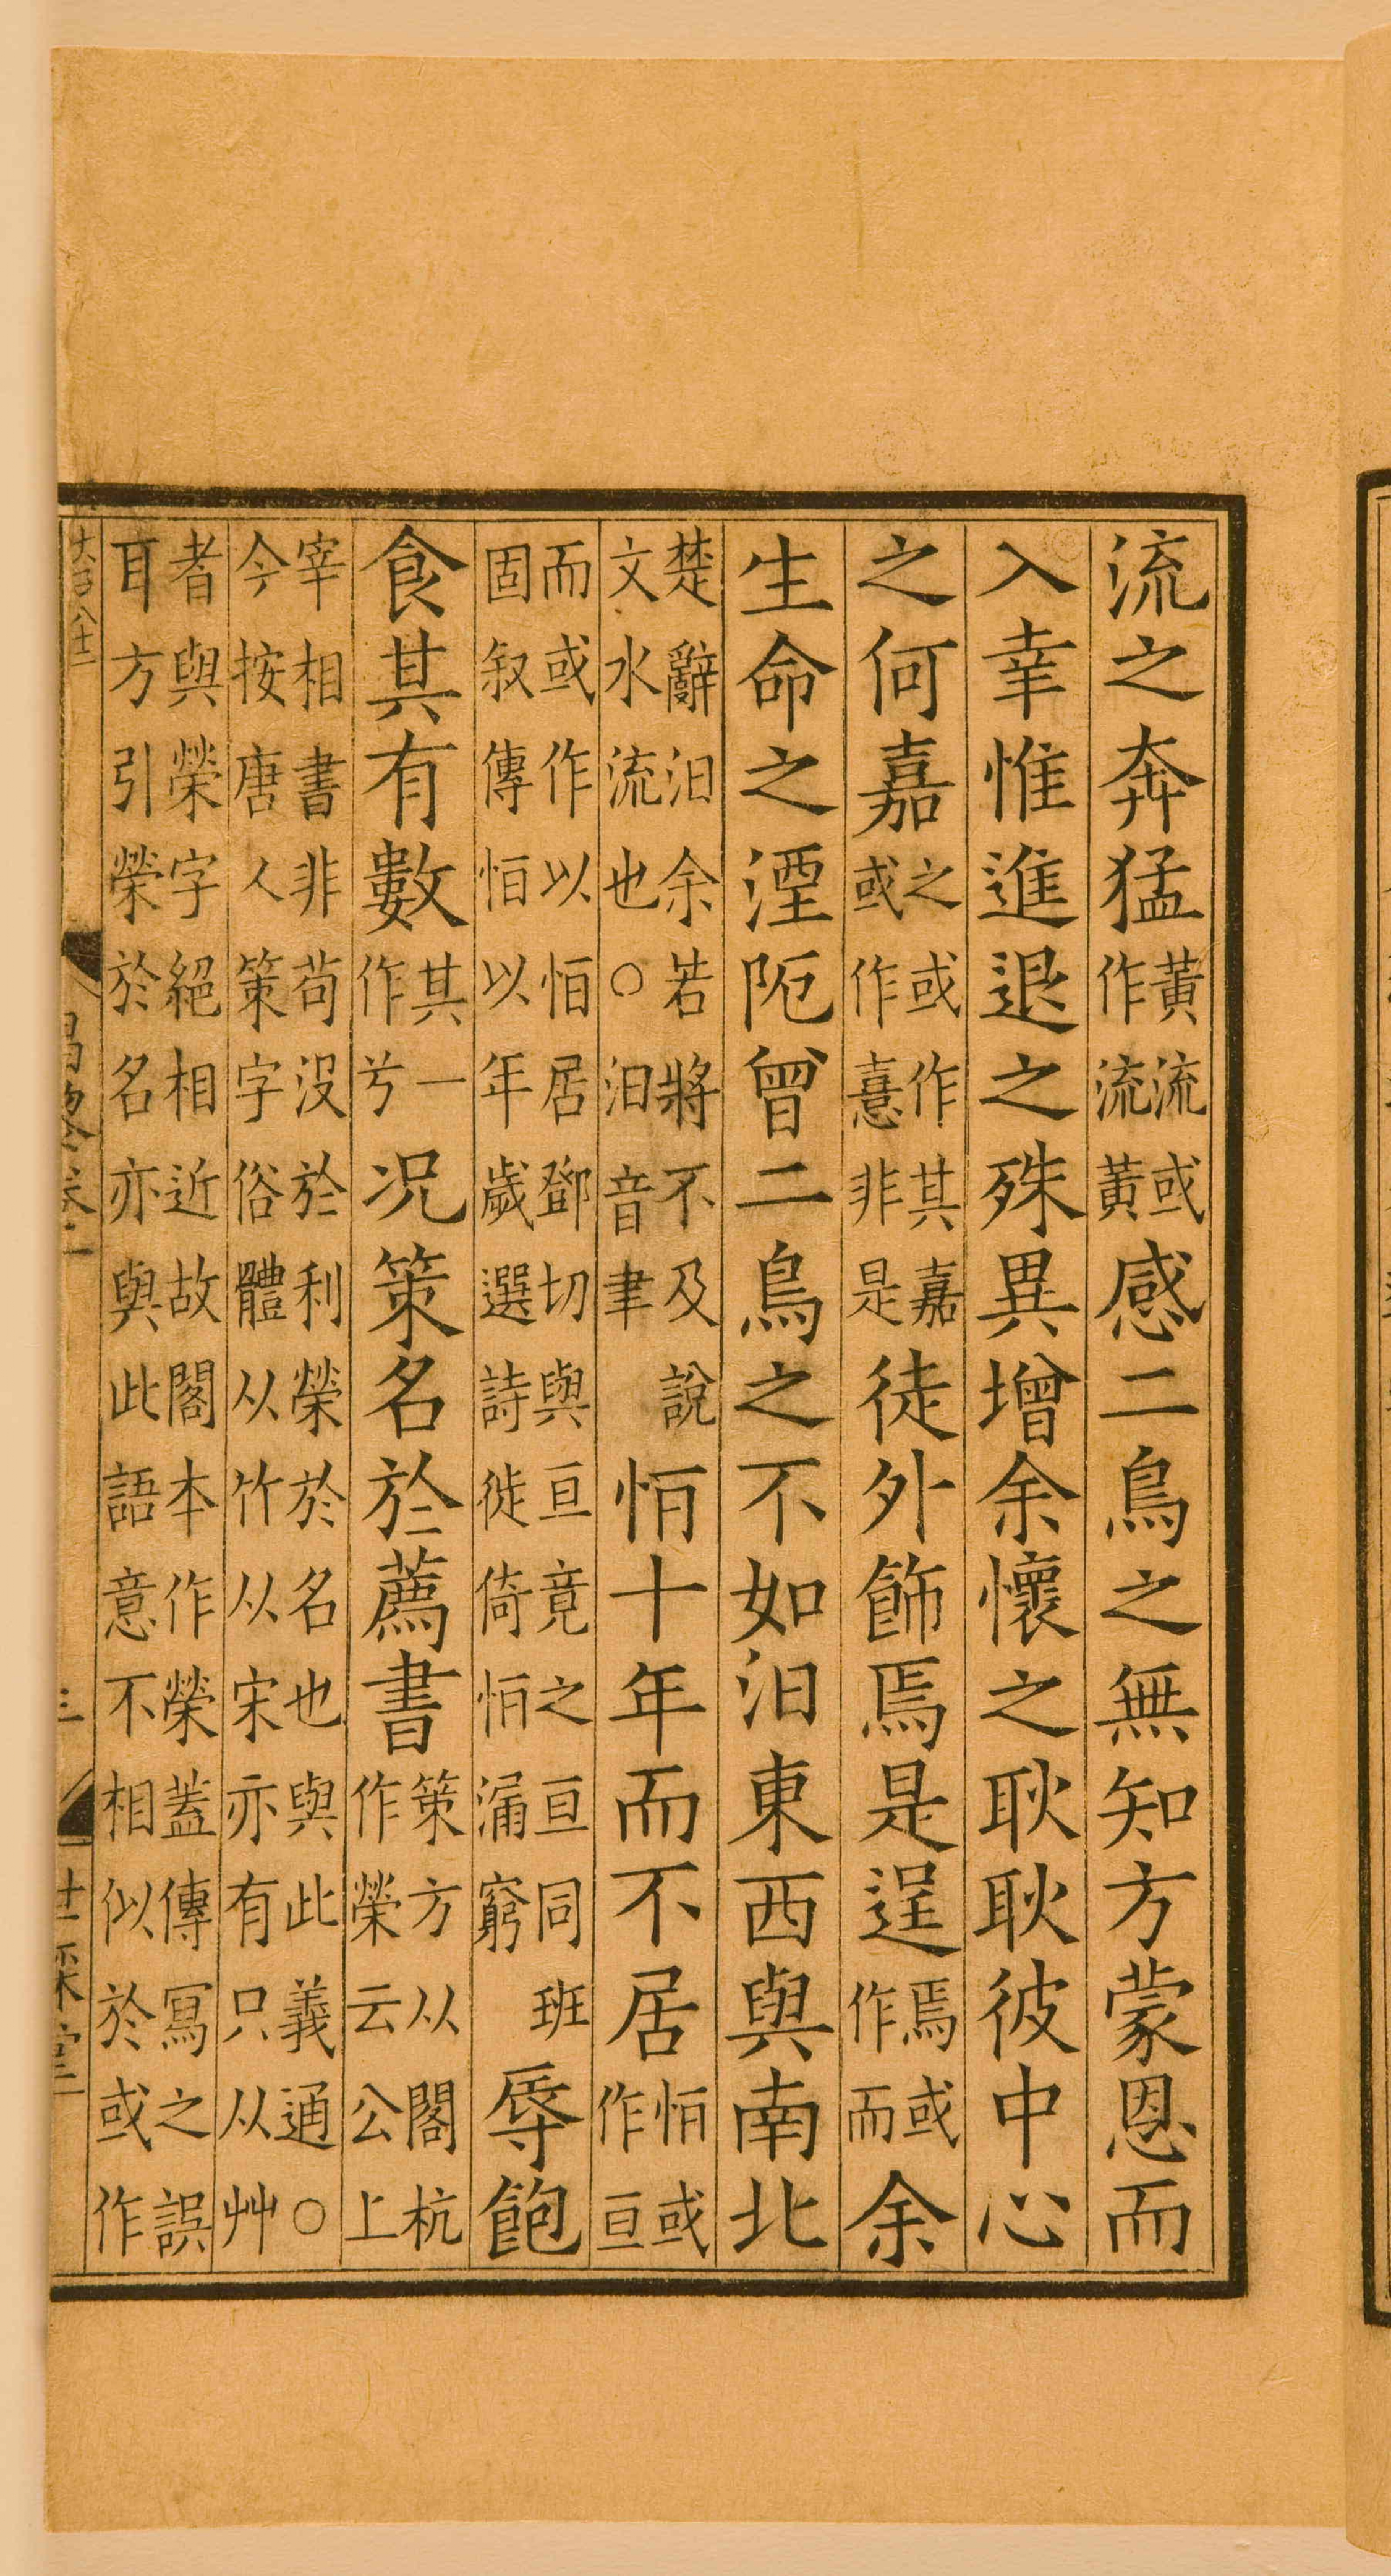 流之奔猛黃流或作流黃感二鳥之無知方蒙恩而
入幸惟進退之殊異增余懷之耿耿彼中心
之何嘉之或作其嘉或作憙非是徒外飾焉是逞焉或作而余
生命之湮阨曾二鳥之不如汨東西與南北
楚辭汨余若將不及說文水流也○汨音聿恒十年而不居恒或作亘
而或作以恒居鄧切與亘竟之亘同班固叙傳恒以年歲選詩徙倚恒漏窮辱飽
食其有數其一作兮况策名於薦書策方从閣杭作榮云公上
宰相書非苟没於利榮於名也與此義通○今按唐人策字俗體从竹从宋亦有只从艸
者與榮字絕相近故閣本作榮蓋傳寫之誤耳方引榮於名亦與此語意不相似於或作
三